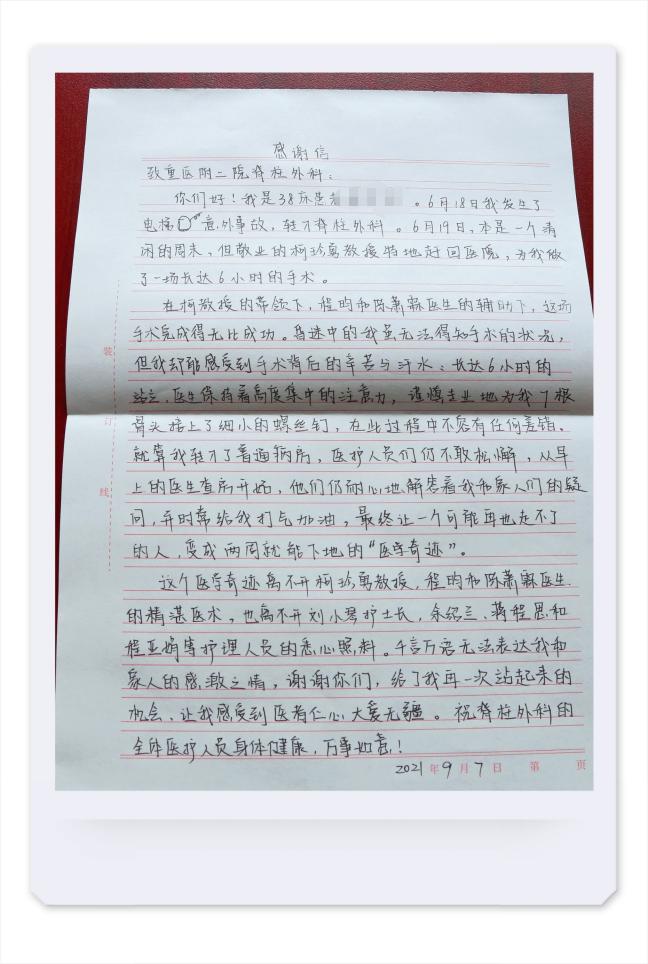 感谢信
致重医附二院脊柱外科：
你们好！我是38床患者。6月18日我发生了
电梯意外事故，转才脊柱外科。6月19日，本是一个清
闲的周末，但敬业的柯珍勇教授特地赶回医院，为我做
了一场长达6小时的手术。
在柯教授的带领下，程昀和陈萧霖医生的辅助下，这场
手术完成得无比成功。昏迷中的我虽无法得知手术的状况，
但我却能感受到手术背后的辛苦与汗水：长达6小时的
站立、医生保持着高度集中的注意力，谨慎专业地为我7根
骨头接上了细小的螺丝钉，在此过程中不容有任何差错。
就算我转才了普通病房，医护人员们仍不敢松懈，从早
上的医生查房开始，他们仍耐心地解答着我和家人们的疑
问，并时常给我打气加油，最终让一个可能再也走不了
的人，变成两周就能下地的“医学奇迹”。
这个医学奇迹离不开柯珍勇教授，程昀和陈萧霖医生
的精湛医术，也离不开刘小琴护士长，余绍兰、蒋程思和
程亚娟等护理人员的悉心照料。千言万语无法表达我和
家人的感激之情，谢谢你们，给了我再一次站起来的
机会、让我感受到医者仁心大爱无疆。祝脊柱外科的
全体医护人员身体健康，万事如意！
2021年9月7日 第 页
装
订
线